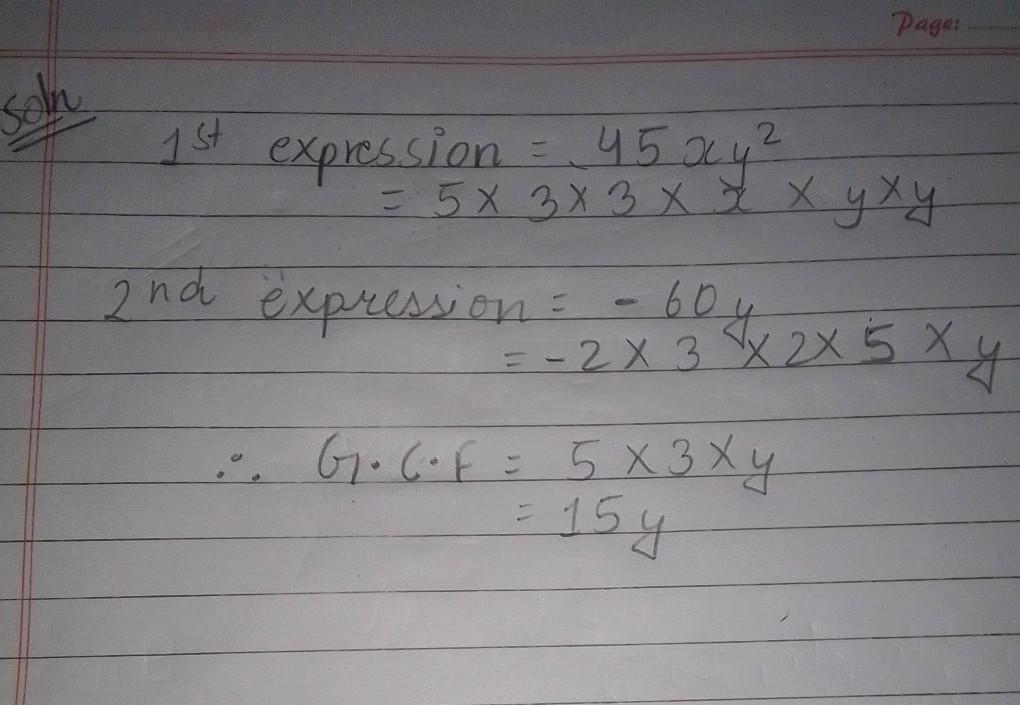 Page:
Soln
1st expression = 45xy²
= 5 × 3 × 3 × x × y × y
2nd expression = - 60y
= - 2 × 3 × 2 × 5 × y
∴ G.C.F = 5 × 3 × y
= 15y